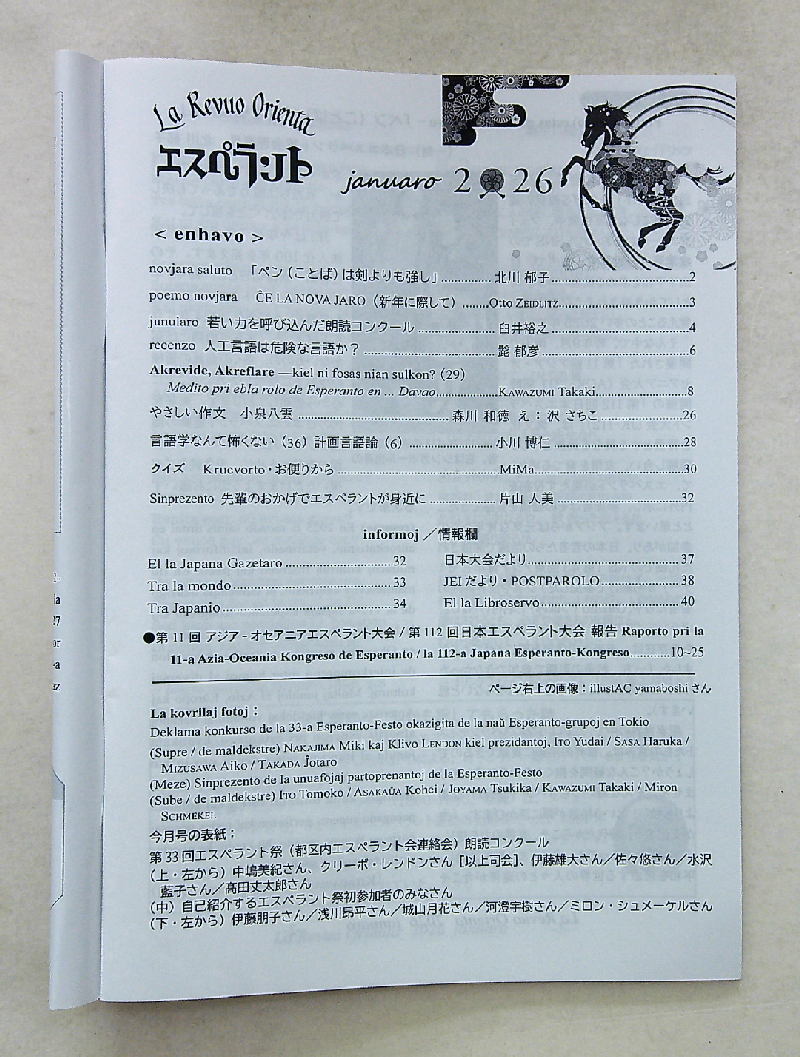 La Revuo Orienta
エスペラント
januaro 2026
< enhavo >
novjara saluto 「ペン（ことば）は剣よりも強し」 北川 郁子 2
poemo novjara ĈE LA NOVA JARO（新年に際して） Otto ZEIDLITZ 3
junularo 若い力を呼び込んだ朗読コンクール 臼井裕之 4
recenzo 人工言語は危険な言語か？ 郁彦 6
Akrevide, Akreflare —kiel ni fosas nian sulkon? (29)
Medito pri ebla rolo de Esperanto en ... Davao KAWAZUMI Takaki 8
やさしい作文 小泉八雲 森川 和徳 え：沢 さちこ 26
言語学なんて怖くない（36）計画言語論（6） 小川 博仁 28
クイズ Krucvorto・お便りから MiMa 30
Sinprezento 先輩のおかげでエスペラントが身近に 片山 人美 32
informoj ／情報欄
El la Japana Gazetaro 32
Tra la mondo 33
Tra Japanio 34
日本大会だより 37
JEI だより・POSTPAROLO 38
El la Libroservo 40
●第 11 回 アジア - オセアニアエスペラント大会 / 第 112 回日本エスペラント大会 報告 Raporto pri la
11-a Azia-Oceania Kongreso de Esperanto / la 112-a Japana Esperanto-Kongreso 10~25
ページ右上の画像：illustAC yamaboshi さん
La kovrilaj fotoj：
Deklama konkurso de la 33-a Esperanto-Festo okazigita de la naŭ Esperanto-grupoj en Tokio
(Supre / de maldekstre) NAKAJIMA Miki kaj Klivo LENDON kiel prezidantoj, ITO Yudai / SASA Haruka /
MIZUSAWA Aiko / TAKADA Ĵotaro
(Meze) Sinprezento de la unuafojaj partoprenantoj de la Esperanto-Festo
(Sube / de maldekstre) ITO Tomoko / ASAKAŬA Kohei / JOYAMA Tsukika / KAWAZUMI Takaki / Miron
SCHMEKEL
今月号の表紙：
第 33 回エスペラント祭（都区内エスペラント会連絡会）朗読コンクール
（上・左から）中嶋美紀さん、クリーボ・レンドンさん［以上司会］、伊藤雄大さん／佐々悠さん／水沢
藍子さん／高田丈太郎さん
（中）自己紹介するエスペラント祭初参加者のみなさん
（下・左から）伊藤朋子さん／浅川昂平さん／城山月花さん／河澄宇樹さん／ミロン・シュメーケルさん